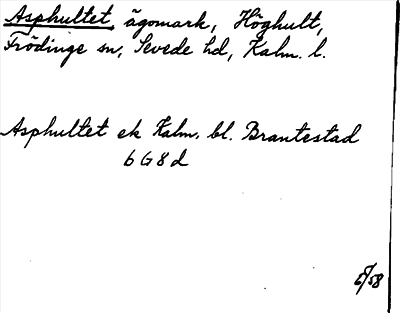 Asphultet, ägomark, Höghult,
Frödinge sn, Sevede hd, Kalm. l.
Asphultet ek Kalm. bl. Brantestad
6 G 8 d